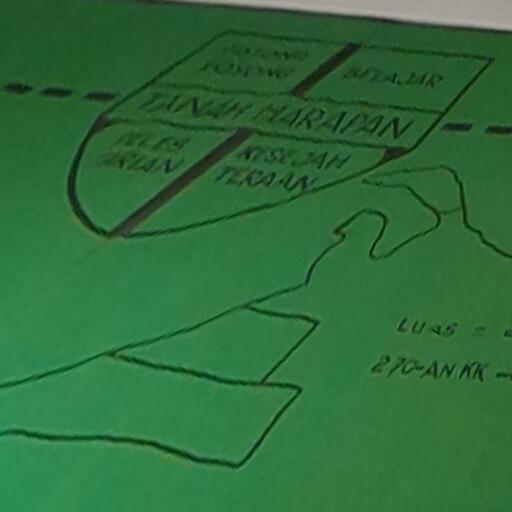 GOTONG
ROYONG
BELAJAR
TANAH HARAPAN
KESEJAH
TERAAN
LUAS =
270-AN KK